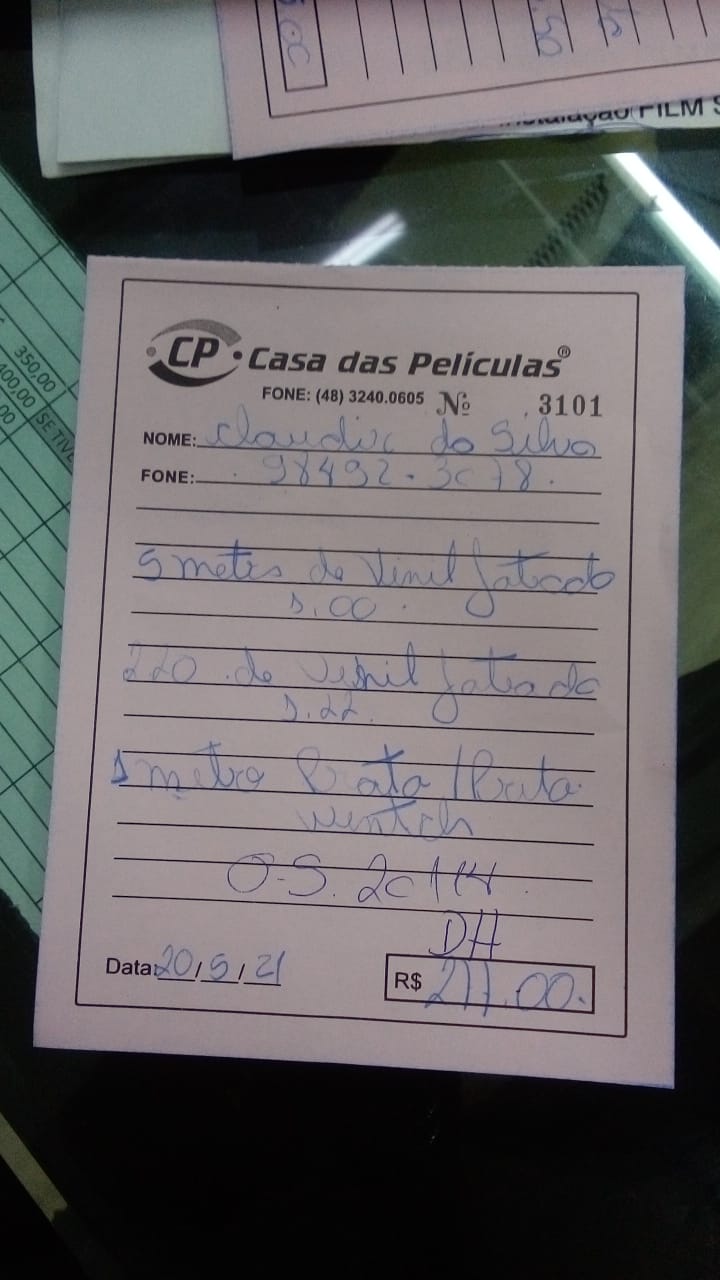 5.00
,50
Instalação FILM S
350,00
400,00 SE TIVE
,00
CP Casa das Películas®
FONE: (48) 3240.0605 Nº 3101
NOME: claudio da Silva
FONE: 98492.3078.
5 metros de Vinil Jateado
1.00.
220 de Vinil Jateado
1.22.
1 metro Prata/Preta
O.S. 20114
DH
Data: 20/5/21 R$ 277.00.